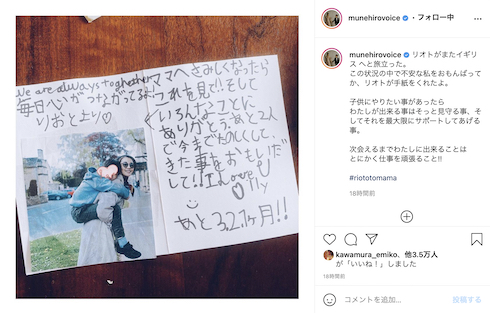 We are always together
毎日心がつながってるよ
りおとより♡
ママへさみしくなったら
これを見て!!そして
いろんなことに
ありがとう。あと2人
で今までたのしくして、
きた事をおもいだ
して!!I Love
あと3,2,1ヶ月!!
munehirovoice • フォロー中
munehirovoice リオトがまたイギリ
ス へと旅立った。
この状況の中で不安な私をおもんぱって
か、リオトが手紙をくれたよ。
子供にやりたい事があったら
わたしが出来る事はそっと見守る事、そ
してそれを最大限にサポートしてあげる
事。
次会えるまでわたしに出来ることは
とにかく仕事を頑張ること!!
#riototomama
18時間前
kawamura_emiko、他3.5万人
が「いいね！」しました
18時間前
コメントを追加... 投稿する